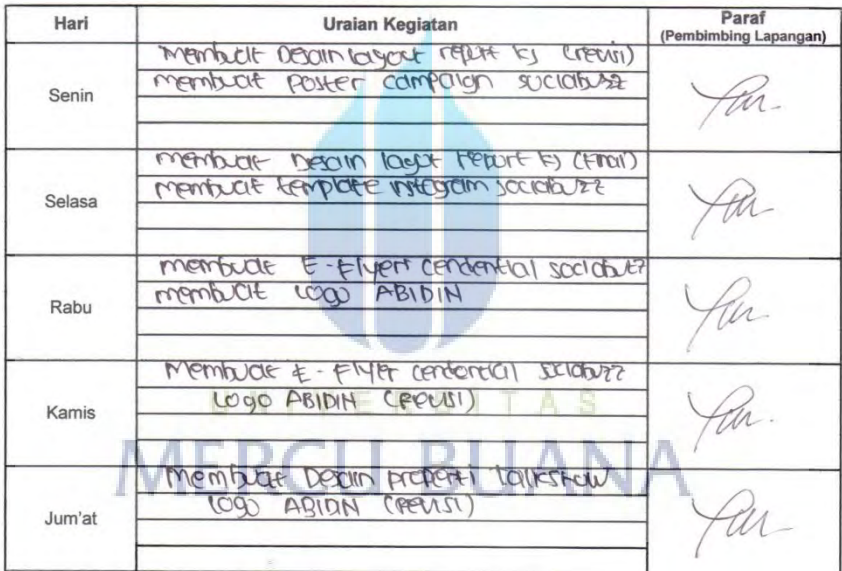 Hari Uraian Kegiatan Paraf
(Pembimbing Lapangan)
Membuat Desain layout report ks (revisi)
membuat poster campaign sociabuzz
Senin
membuat Desain layout report ks (Final)
membuat template instagram sociabuzz
Selasa
membuat E-Flyert cendential sociabuzz
membuat LOGO ABIDIN
Rabu
Membuat E-Flyer cendential sociabuzz
Logo ABIDIN (revisi)
Kamis
UNIVERSITAS
MERCU BUANA
Membuat Desain properti talkshow
Logo ABIDIN (revisi)
Jum'at